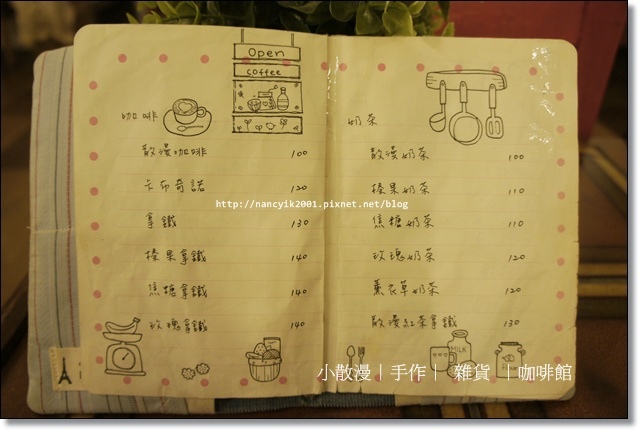 Open
coffee
咖啡
散漫咖啡 100
卡布奇諾 120
拿鐵 130
榛果拿鐵 140
焦糖拿鐵 140
玫瑰拿鐵 140
奶茶
散漫奶茶 100
榛果奶茶 110
焦糖奶茶 110
玫瑰奶茶 120
薰衣草奶茶 120
散漫紅茶拿鐵 130
MILK
http://nancyik2001.pixnet.net/blog
小散漫｜手作｜ 雜貨 ｜咖啡館